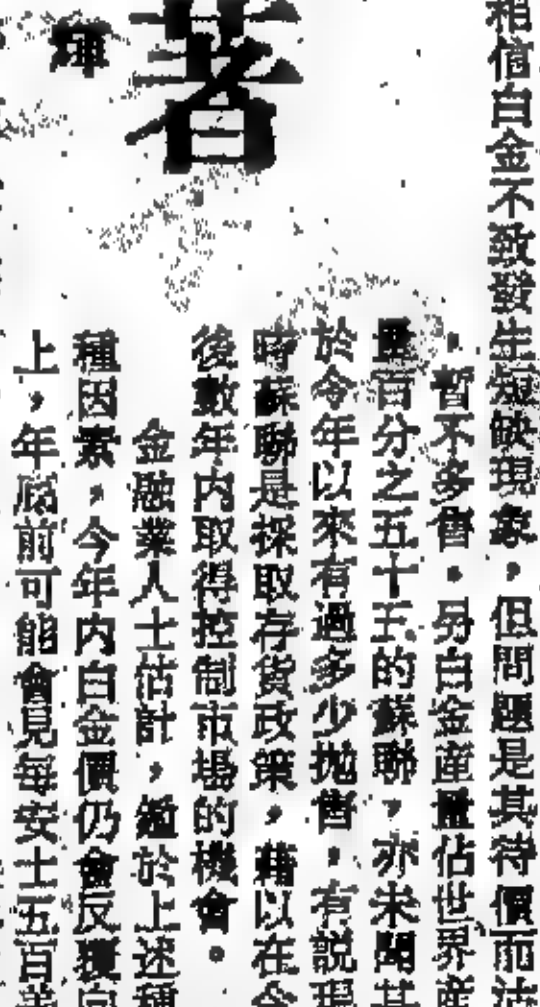 著
相信白金不致發生短缺現象，但問題是其待價而沽
，暫不多售。另白金產量佔世界產
量百分之五十五的蘇聯，亦未聞其
於今年以來有過多少拋售，有説現
時蘇聯是採取存貨政策，藉以在今
後數年内取得控制市場的機會。
金融業人士估計，鑑於上述種
種因素，今年内白金價仍會反覆向
上，年底前可能會見每安士五百美